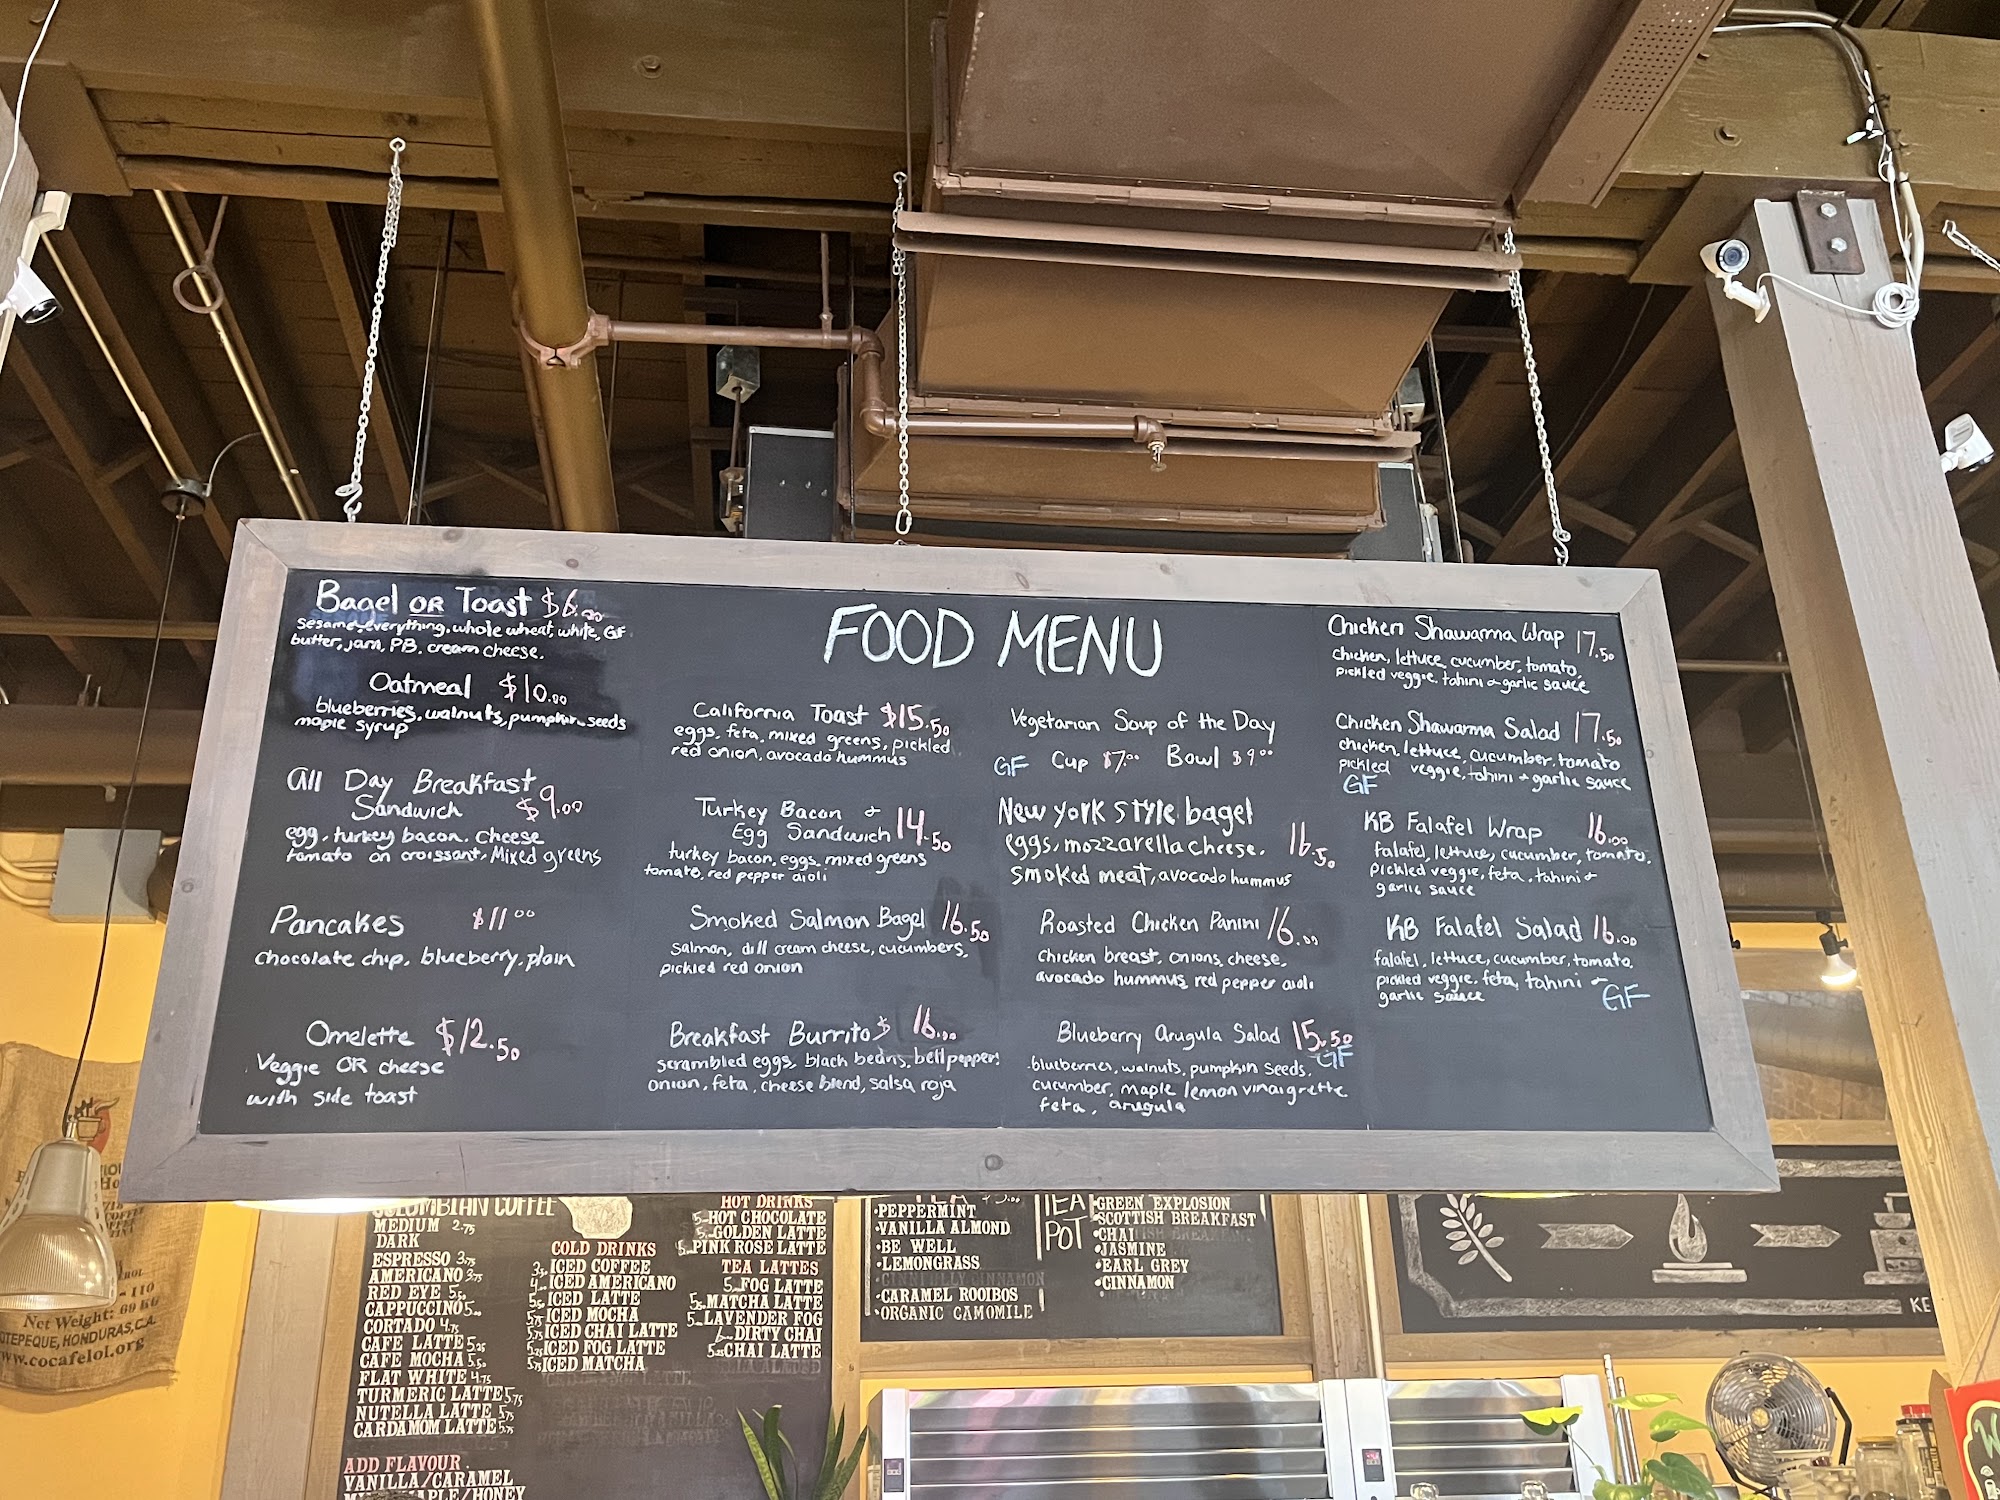 Bagel OR Toast $6.00
sesame, everything, whole wheat, white, GF
butter, jam, PB, cream cheese.
Oatmeal $10.00
blueberries, walnuts, pumpkin seeds
maple syrup
All Day Breakfast
Sandwich $9.00
egg, turkey bacon. Cheese
tomato on croissant. Mixed greens
Pancakes $11.00
chocolate chip, blueberry, plain
Omelette $12.50
Veggie OR cheese
with side toast
FOOD MENU
California Toast $15.50
eggs, feta, mixed greens, pickled
red onion, avocado hummus
Turkey Bacon &
Egg Sandwich 14.50
turkey bacon, eggs, mixed greens
tomato, red pepper aioli
Smoked Salmon Bagel 16.50
salmon, dill cream cheese, cucumbers,
pickled red onion
Breakfast Burrito $ 16.00
scrambled eggs, black beans, bell pepper,
onion, feta, cheese blend, salsa roja
Vegetarian Soup of the Day
GF Cup $7.00 Bowl $9.00
New york style bagel
eggs, mozzarella cheese. 16.50
smoked meat, avocado hummus
Roasted Chicken Panini 16.00
chicken breast, onions, cheese,
avocado hummus, red pepper aioli
Blueberry Arugula Salad 15.50
GF
blueberries, walnuts, pumpkin seeds,
cucumber, maple lemon vinaigrette
feta, arugula
Chicken Shawarma Wrap 17.50
chicken, lettuce, cucumber, tomato,
pickled veggie, tahini & garlic sauce
Chicken Shawarma Salad 17.50
chicken, lettuce, cucumber, tomato
pickled veggie, tahini & garlic sauce
GF
KB Falafel Wrap 16.00
falafel, lettuce, cucumber, tomato,
pickled veggie, feta, tahini &
garlic sauce
KB Falafel Salad 16.00
falafel, lettuce, cucumber, tomato,
pickled veggie, feta, tahini &
garlic sauce
GF
COLOMBIAN COFFEE
MEDIUM 2.75
DARK
ESPRESSO 3.75
AMERICANO 3.75
RED EYE 5.50
CAPPUCCINO 5.00
CORTADO 4.75
CAFE LATTE 5.25
CAFE MOCHA 5.50
FLAT WHITE 4.75
TURMERIC LATTE 5.75
NUTELLA LATTE 5.75
CARDAMOM LATTE 5.75
ADD FLAVOUR
VANILLA/CARAMEL
MAPLE/HONEY
COLD DRINKS
ICED COFFEE
ICED AMERICANO
ICED LATTE
ICED MOCHA
ICED CHAI LATTE
ICED FOG LATTE
ICED MATCHA
HOT DRINKS
HOT CHOCOLATE
GOLDEN LATTE
PINK ROSE LATTE
TEA LATTES
FOG LATTE
MATCHA LATTE
LAVENDER FOG
DIRTY CHAI
CHAI LATTE
TEA
•PEPPERMINT
•VANILLA ALMOND
•BE WELL
•LEMONGRASS
•CARAMEL ROOIBOS
•ORGANIC CAMOMILE
TEA
POT
•GREEN EXPLOSION
•SCOTTISH BREAKFAST
•CHAI
•JASMINE
•EARL GREY
•CINNAMON
KE
Net Weight: 69 KG
OTEPEQUE, HONDURAS, C.A.
www.cocafelol.org